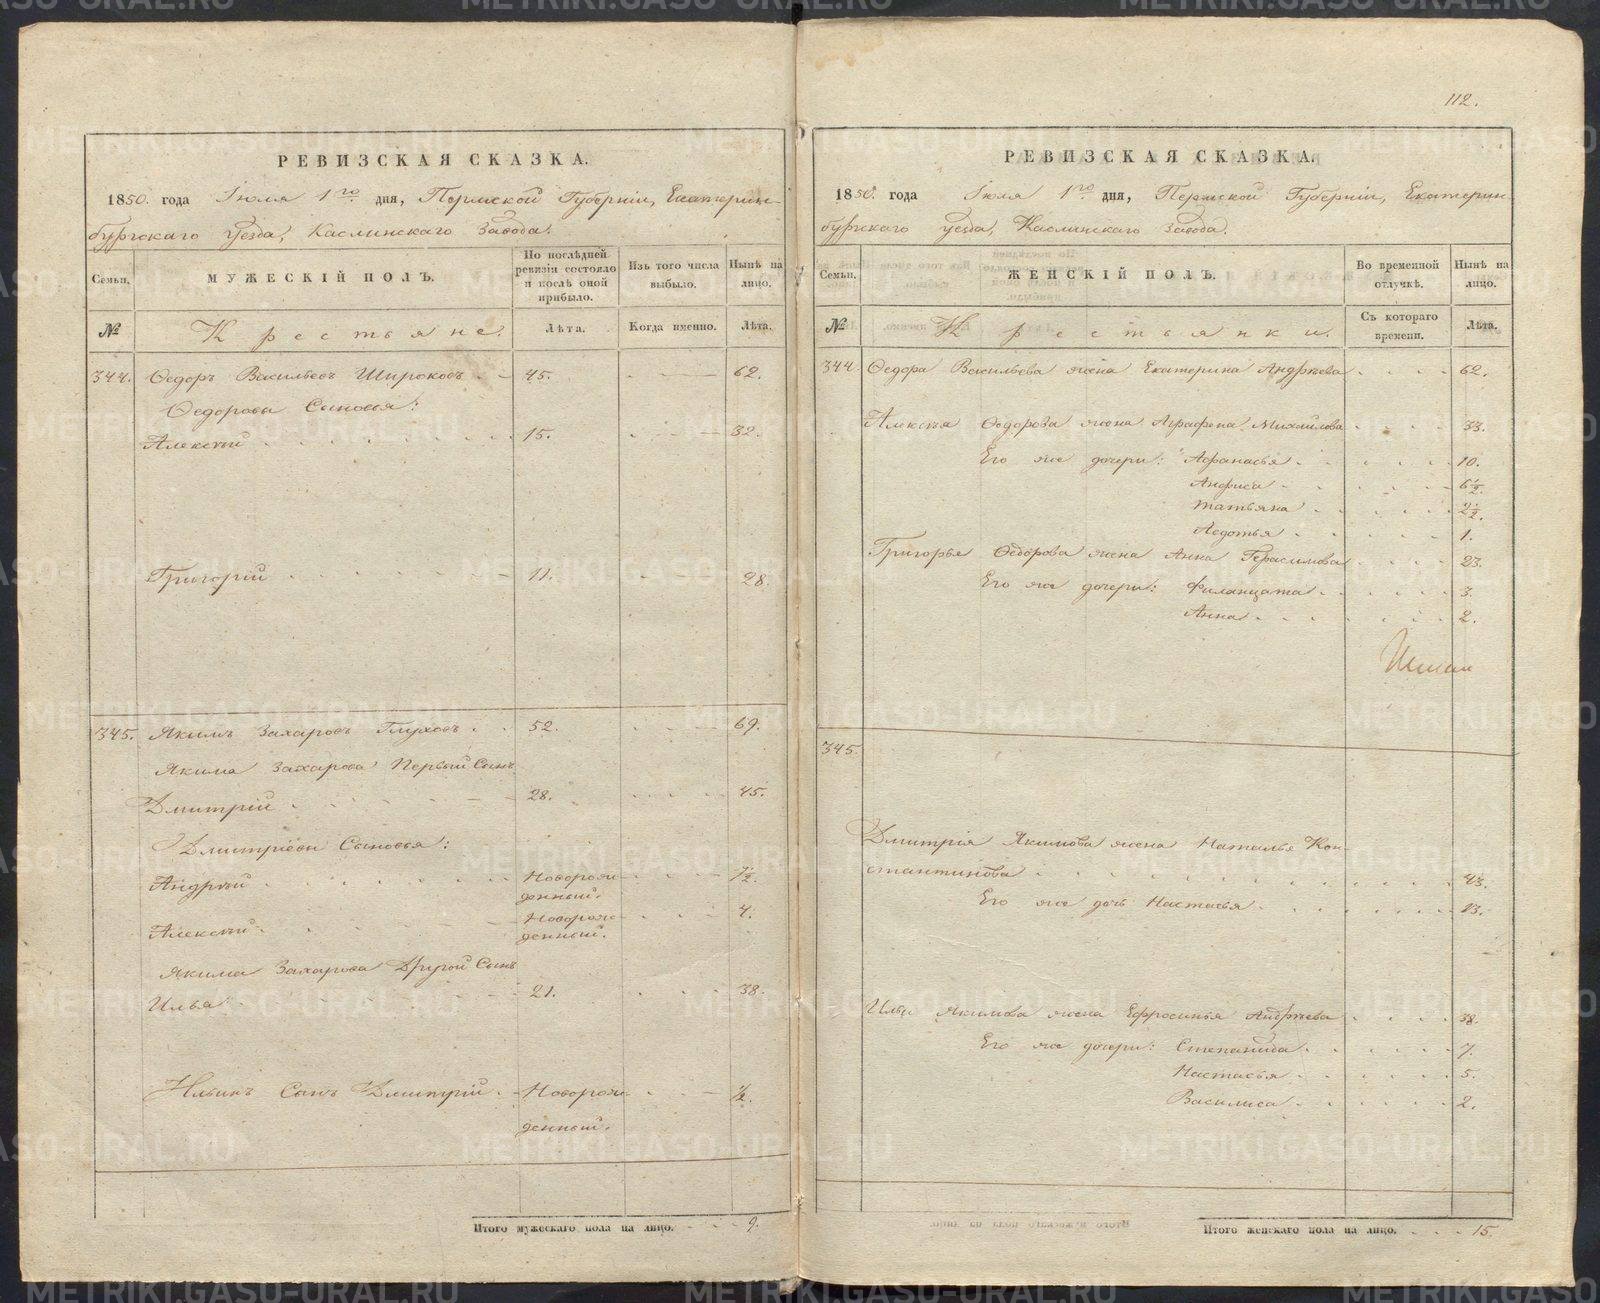 РЕВИЗСКАЯ СКАЗКА.
1850. года Іюля 1го дня, Пермской Губерніи, Екатерин-
бургскаго Уезда, Каслинскаго Завода.
Семьи.
МУЖЕСКІЙ ПОЛЪ.
По послѣдней ревизіи состояло и послѣ оной прибыло.
Изъ того числа выбыло.
Нынѣ на лицо.
№
Крестьяне.
Лѣта.
Когда именно.
Лѣта.
344. Ѳедоръ Васильевъ Широковъ 45. 62.
Ѳедоровы Сыновья:
Алексѣй 15. 32.
Григорій 11. 28.
345. Якимъ Захаровъ Глуховъ. 52. 69.
Якима Захарова Первый Сынъ
Дмитрій 28. 45.
Дмитріевы Сыновья:
Андрѣй Новорож- 7½.
денный.
Алексѣй Новорож- 4.
денный.
Якима Захарова Другой Сынъ
Илья 21. 38.
Ильинъ Сынъ Дмитрій Новорож- ½.
денный.
Итого мужескаго пола на лицо. 9.
112.
РЕВИЗСКАЯ СКАЗКА.
1850. года Іюля 1го дня, Пермской Губерніи, Екатерин-
бургскаго Уезда, Каслинскаго Завода.
Семьи.
ЖЕНСКІЙ ПОЛЪ.
Во временной отлучкѣ.
Нынѣ на лицо.
№
Крестьянки.
Съ котораго времени.
Лѣта.
344. Ѳедора Васильева жена Екатерина Андрѣева 62.
Алексѣя Ѳедорова жена Аграфена Михайлова 33.
Его же дочери: Афанасья 10.
Анфиса 6½.
Татьяна 2½.
Авдотья 1.
Григорья Ѳедорова жена Анна Герасимова 23.
Его же дочери: Филанцата 3.
Анна 2.
345.
Дмитрія Якимова жена Наталья Кон-
стантинова 43.
Его же дочь Настасья 13.
Ильи Якимова жена Ефросинья Андрѣева 38.
Его же дочери: Степанида 7.
Настасья 5.
Василиса 2.
Итого женскаго пола на лицо. 15.
METRIKI.GASO-URAL.RU